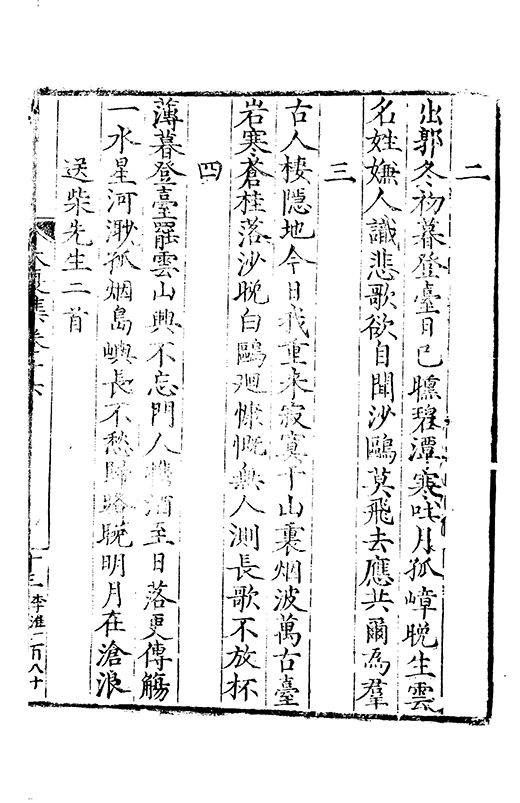 二
出郭冬初暮登臺日已曛碧潭寒吐月孤嶂晚生雲
名姓嫌人識悲歌欲自聞沙鷗莫飛去應共爾爲羣
三
古人棲隱地今日我重來寂寞千山裏烟波萬古臺
岩寒蒼桂落沙晚白鷗廻慷慨無人測長歌不放杯
四
薄暮登臺罷雲山興不忘門人携酒至日落更傳觴
一水星河渺孤烟島嶼長不愁歸路晚明月在滄浪
送柴先生二首
集卷十六
十三 李淮二百八十